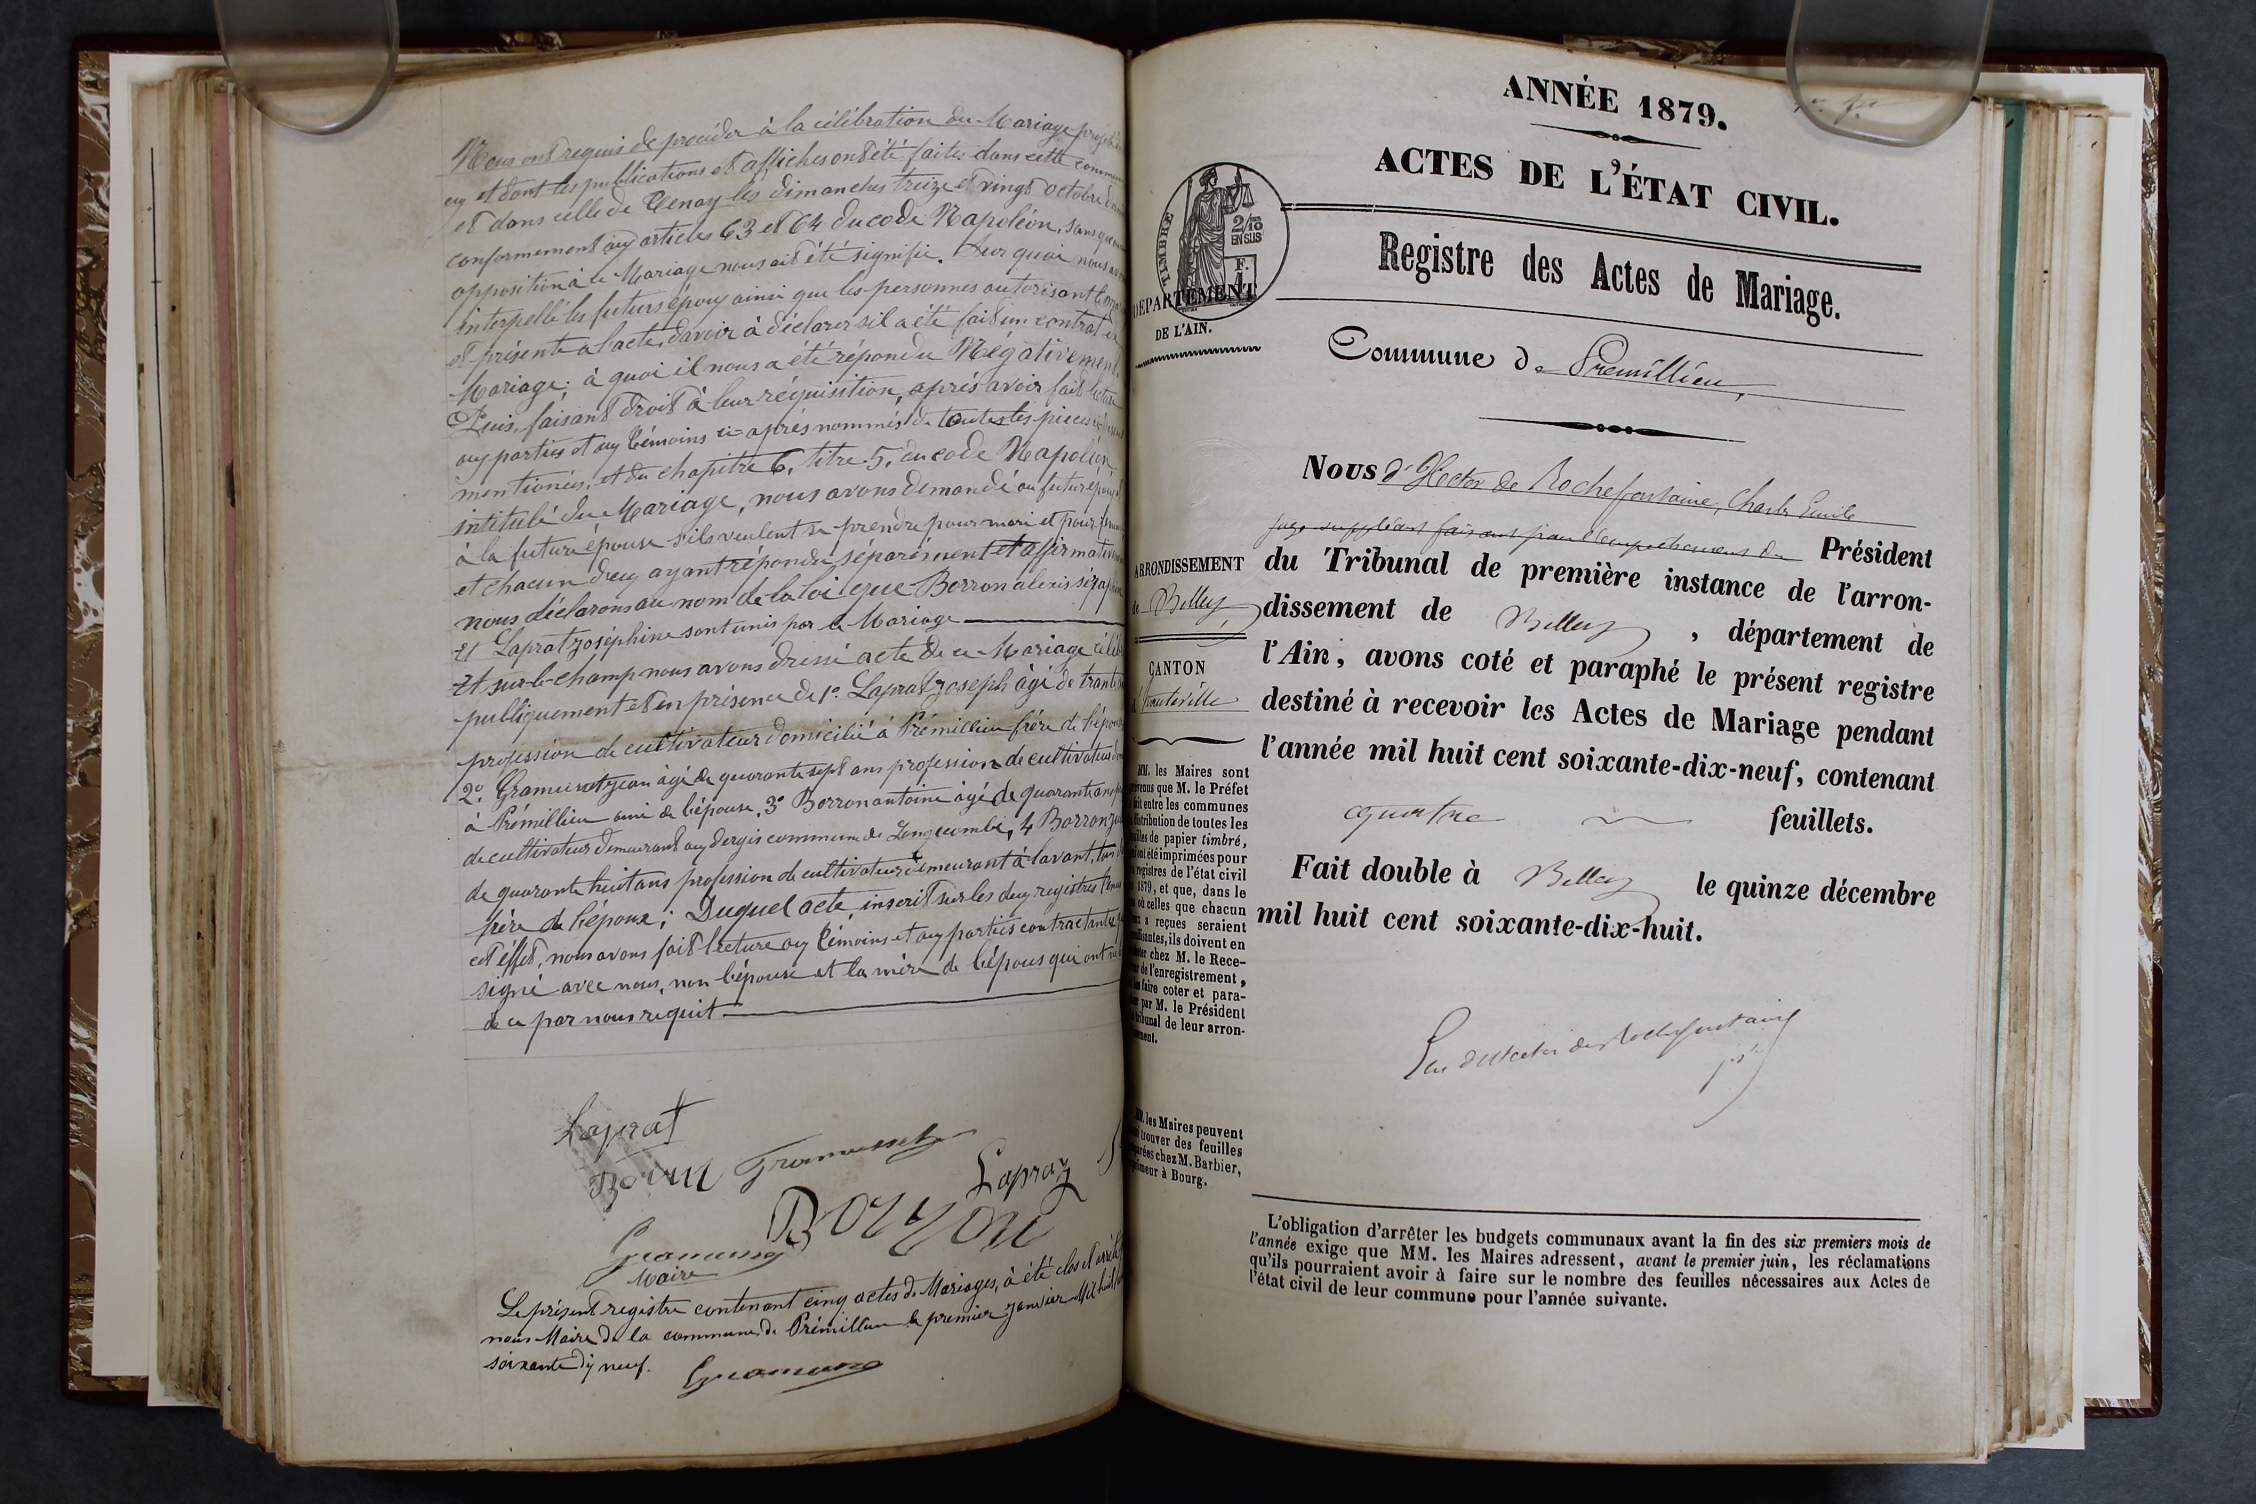 Nous ont requis de procéder à la célébration du Mariage projeté
eux et dont les publications et affiches ont été faites dans cette commune
et dans celle de Tenay les dimanches treize et vingt octobre
conformement aux articles 63 et 64 du code Napoléon, sans
opposition à ce Mariage nous ait été signifié. Sur quoi nous
interpellé les futurs époux ainsi que les personnes autorisant
et présente a l'acte, d'avoir à déclarer s'il a été fait un contrat de
Mariage; à quoi il nous a été répondu Négativement.
Puis, faisant droit à leur réquisition, après avoir fait lecture
aux parties et aux témoins ci-après nommés de toutes les pièces
mentionées, et du chapitre 6, titre 5, du code Napoléon,
intitulé du Mariage, nous avons demandé au futur époux
à la future épouse s'ils veulent se prendre pour mari et pour
et chacun d'eux ayant répondu séparément et affirmativement
nous déclarons au nom de la loi que Borron alexis
Et Laprat joséphine sont unis par le Mariage
Et sur-le-champ nous avons dressé acte de ce Mariage
publiquement et en présence de 1º. Laprat joseph âgé de
profession de cultivateur domicilié à Prémillieu frère de l'épouse
2º. Gramusset jean âgé de quarante sept ans profession de cultivateur
à Prémillieu ami de l'épouse, 3º Borron antoine âgé de quarante ans
de cultivateur demeurant aux dergis commune de Longecombe, 4 Borron
de quarante huit ans profession de cultivateur demeurant à lavant, tous
frère de l'époux; Duquel acte, inscrit sur les deux registres
cet éffet, nous avons fait lecture aux témoins et aux parties contractantes
signé avec nous, non l'épouse et la mère de l'épous qui ont
de ce par nous requit
Laprat
Borron Gramusset
Lapraz
Borron
Maire
Le présent registre contenant cinq actes de Mariages, à été clos et arrêté
nous Maire de la commune de Prémillieu le premier janvier Mil huit
soixante dix neuf.
ANNÉE 1879.
ACTES DE L'ÉTAT CIVIL.
TIMBRE
2/10
EN SUS
F.
Registre des Actes de Mariage.
DÉPARTEMENT
DE L'AIN.
Commune de Prémillieu,
Nous d'Hector de Rochefontaine, Charles Emile
juge suppléant faisant pour l'empêchement du Président
du Tribunal de première instance de l'arron-
dissement de Belley, département de
l'Ain, avons coté et paraphé le présent registre
destiné à recevoir les Actes de Mariage pendant
l'année mil huit cent soixante-dix-neuf, contenant
quatre feuillets.
Fait double à Belley le quinze décembre
mil huit cent soixante-dix-huit.
ARRONDISSEMENT
de Belley,
CANTON
hauteville
MM. les Maires sont
que M. le Préfet
entre les communes
distribution de toutes les
de papier timbré,
ont été imprimées pour
registres de l'état civil
1879, et que, dans le
où celles que chacun
a reçues seraient
ils doivent en
chez M. le Rece-
de l'enregistrement,
faire coter et para-
par M. le Président
tribunal de leur arron-
MM. les Maires peuvent
trouver des feuilles
chez M. Barbier,
à Bourg.
L'obligation d'arrêter les budgets communaux avant la fin des six premiers mois de
l'année exige que MM. les Maires adressent, avant le premier juin, les réclamations
qu'ils pourraient avoir à faire sur le nombre des feuilles nécessaires aux Actes de
l'état civil de leur commune pour l'année suivante.